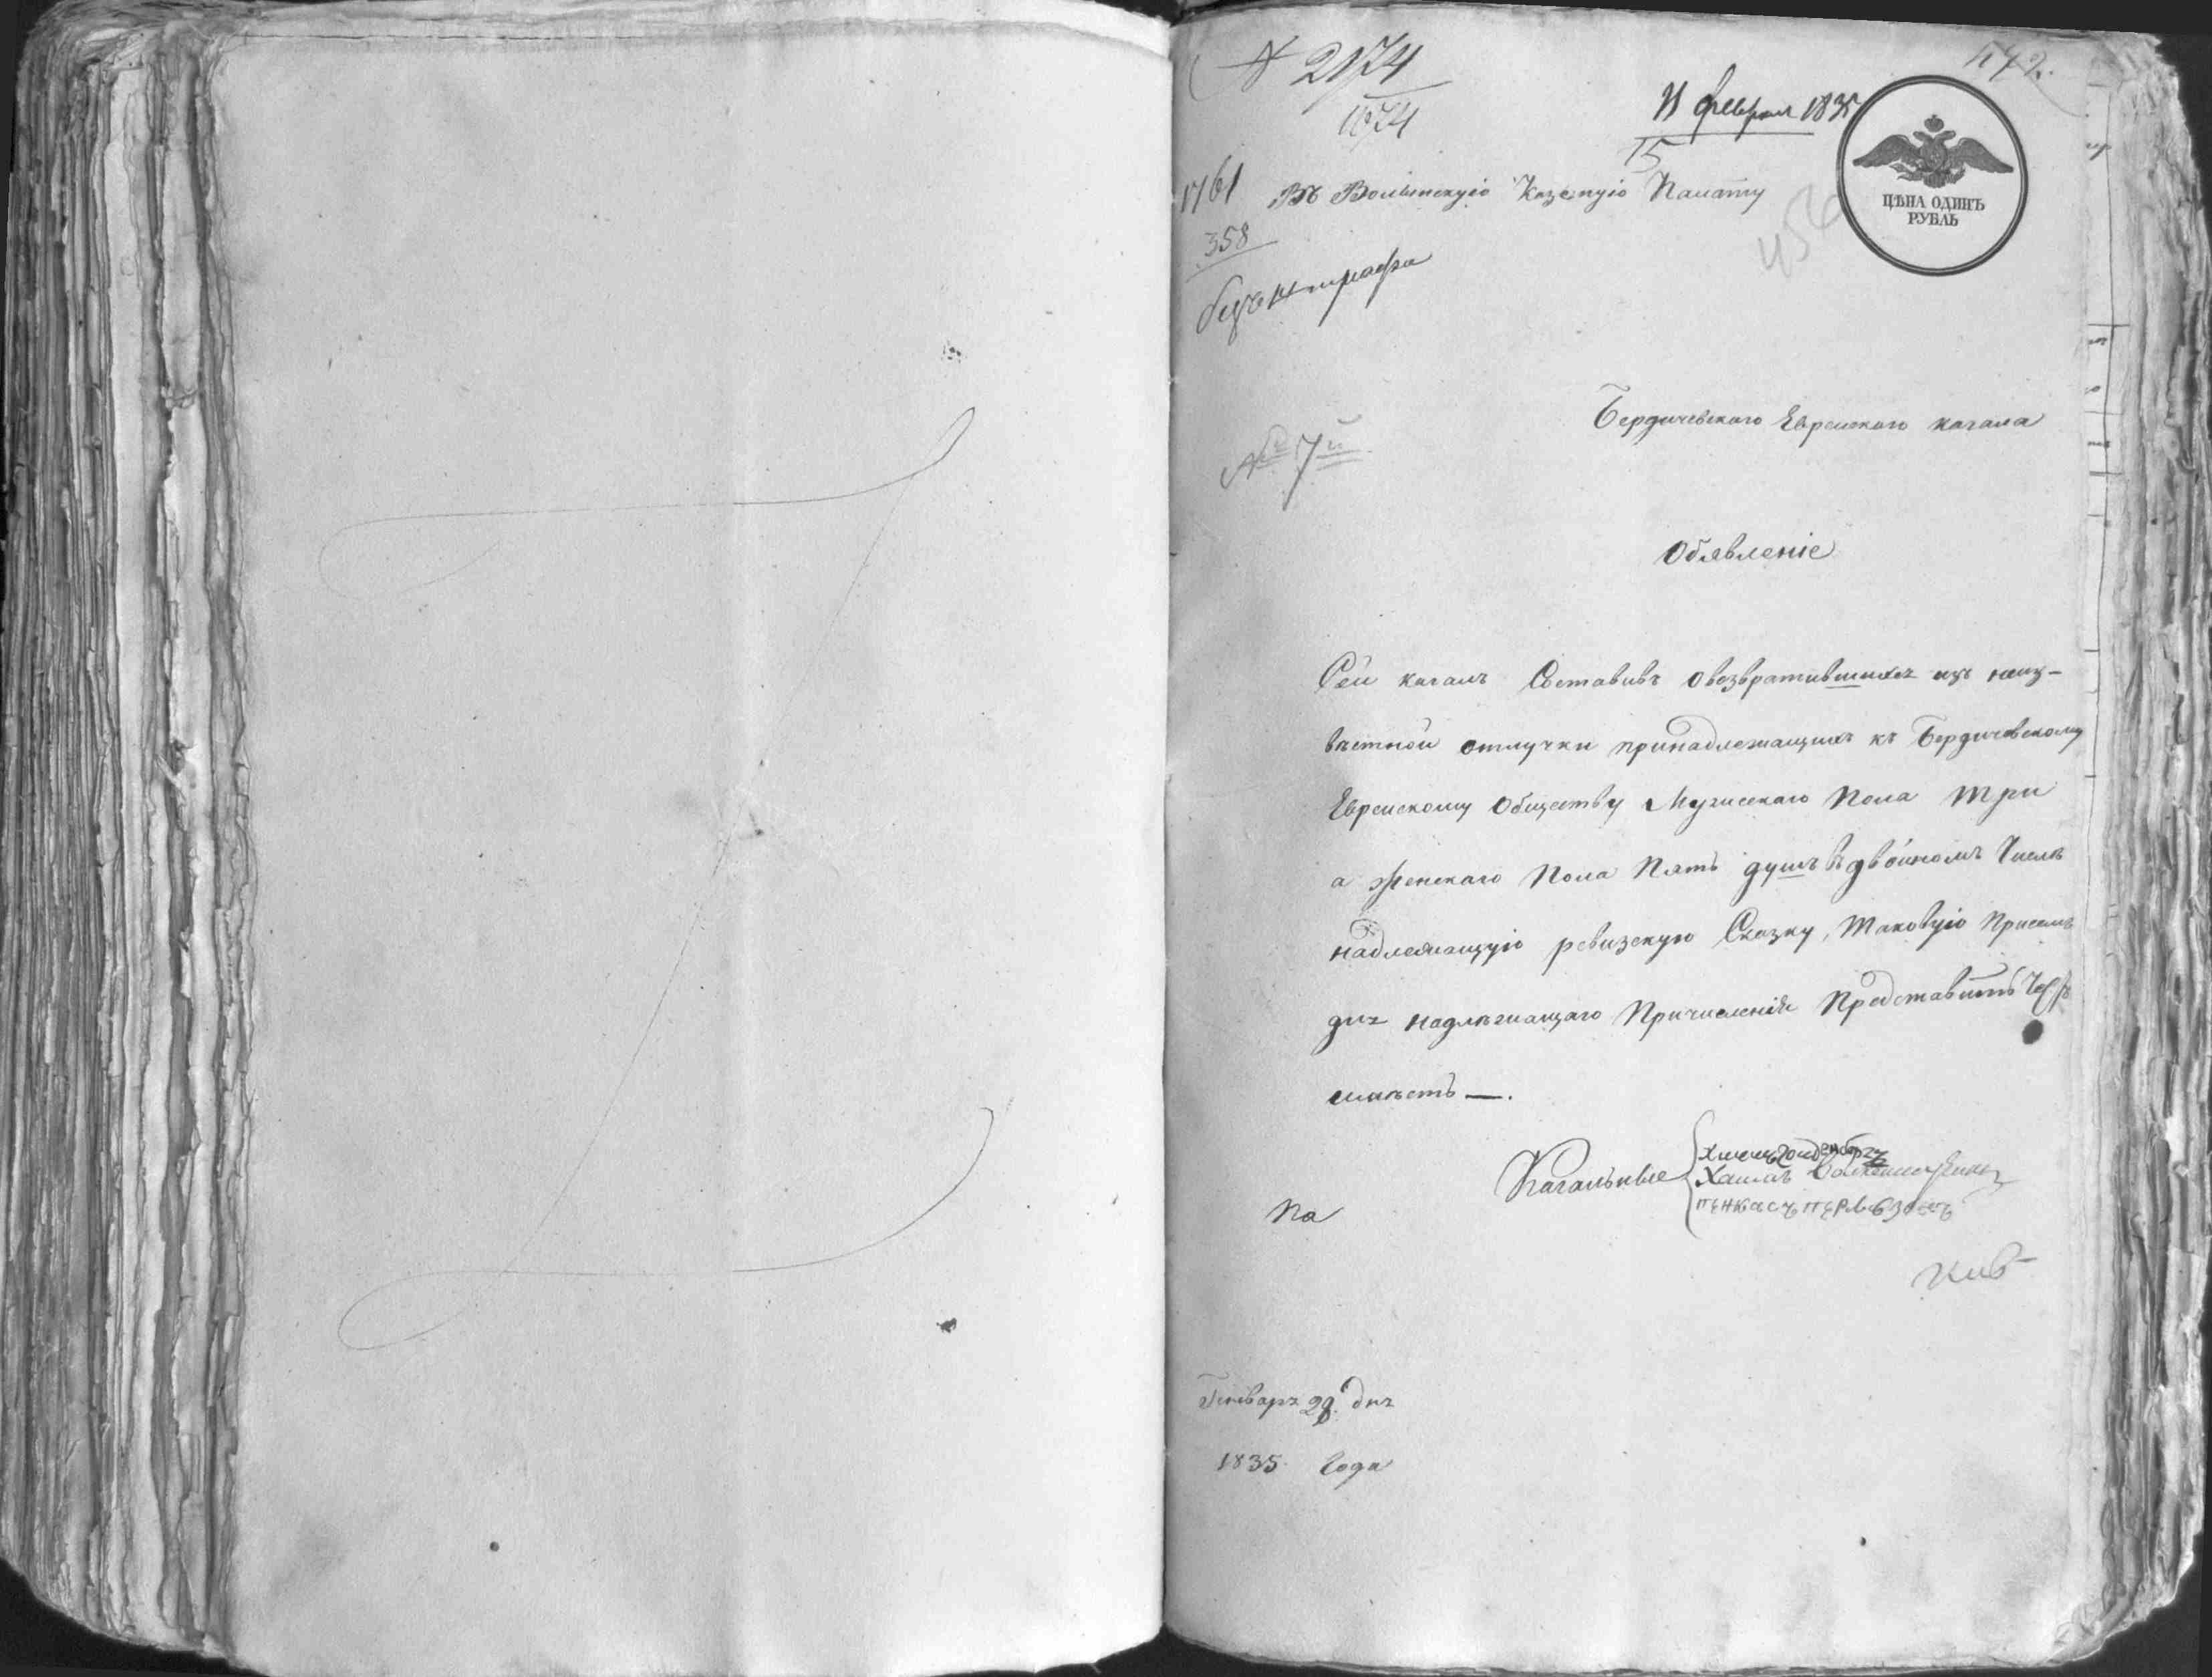 № 2174
1674
11 февраля 1835
15
ЦѢНА ОДИНЪ
РУБЛЬ
1761
Въ Волынскую Казенную Палату
358
безъ штрафа
456
Бердичевскаго Еврейскаго кагала
№ 7й
Обявленіе
Сей кагалъ Составивъ О возвратившихся изъ неиз-
вѣстной отлучки принадлежащихъ къ Бердичевскому
Еврейскому Обществу Мужескаго Пола три
а женскаго Пола Пять душъ въ двойномъ Числѣ
надлежащую ревизскую Сказку, таковую при семъ
для надлежащаго Причисленія Представить Честь
имѣетъ —.
Кагальные
Хаимъ
на
Генваря 28 дня
1835 Года